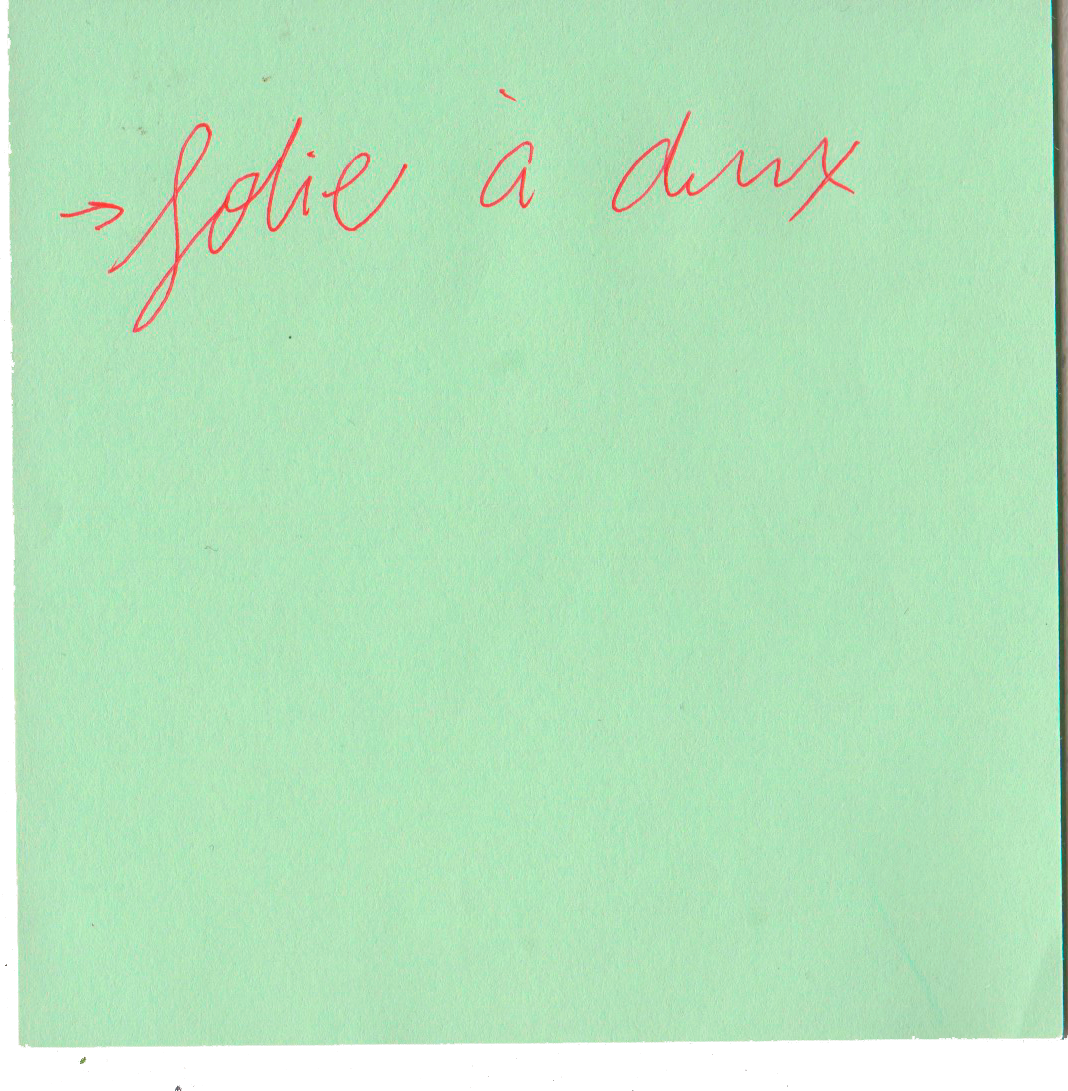 → folie à deux